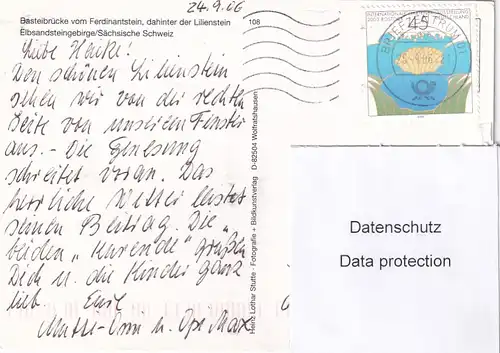 24.9.06
Basteibrücke vom Ferdinantstein, dahinter der Lilienstein
Elbsandsteingebirge/Sächsische Schweiz
108
Liebe Heike!
Den schönen Lilienstein
sehen wir von der rechten
Seite von unserem Fenster
aus. - Die Genesung
schreitet voran. Das
herrliche Wetter leistet
seinen Beitrag. Die
beiden „Kurende" grüßen
Dich u. die Kinder ganz
lieb. Eure
Mutti-Oma u. Opa Max
Heinz Lothar Stutte - Fotografie + Bildkunstverlag D-82504 Wolfratshausen
45
BRIEFZENTRUM 01
Datenschutz
Data protection